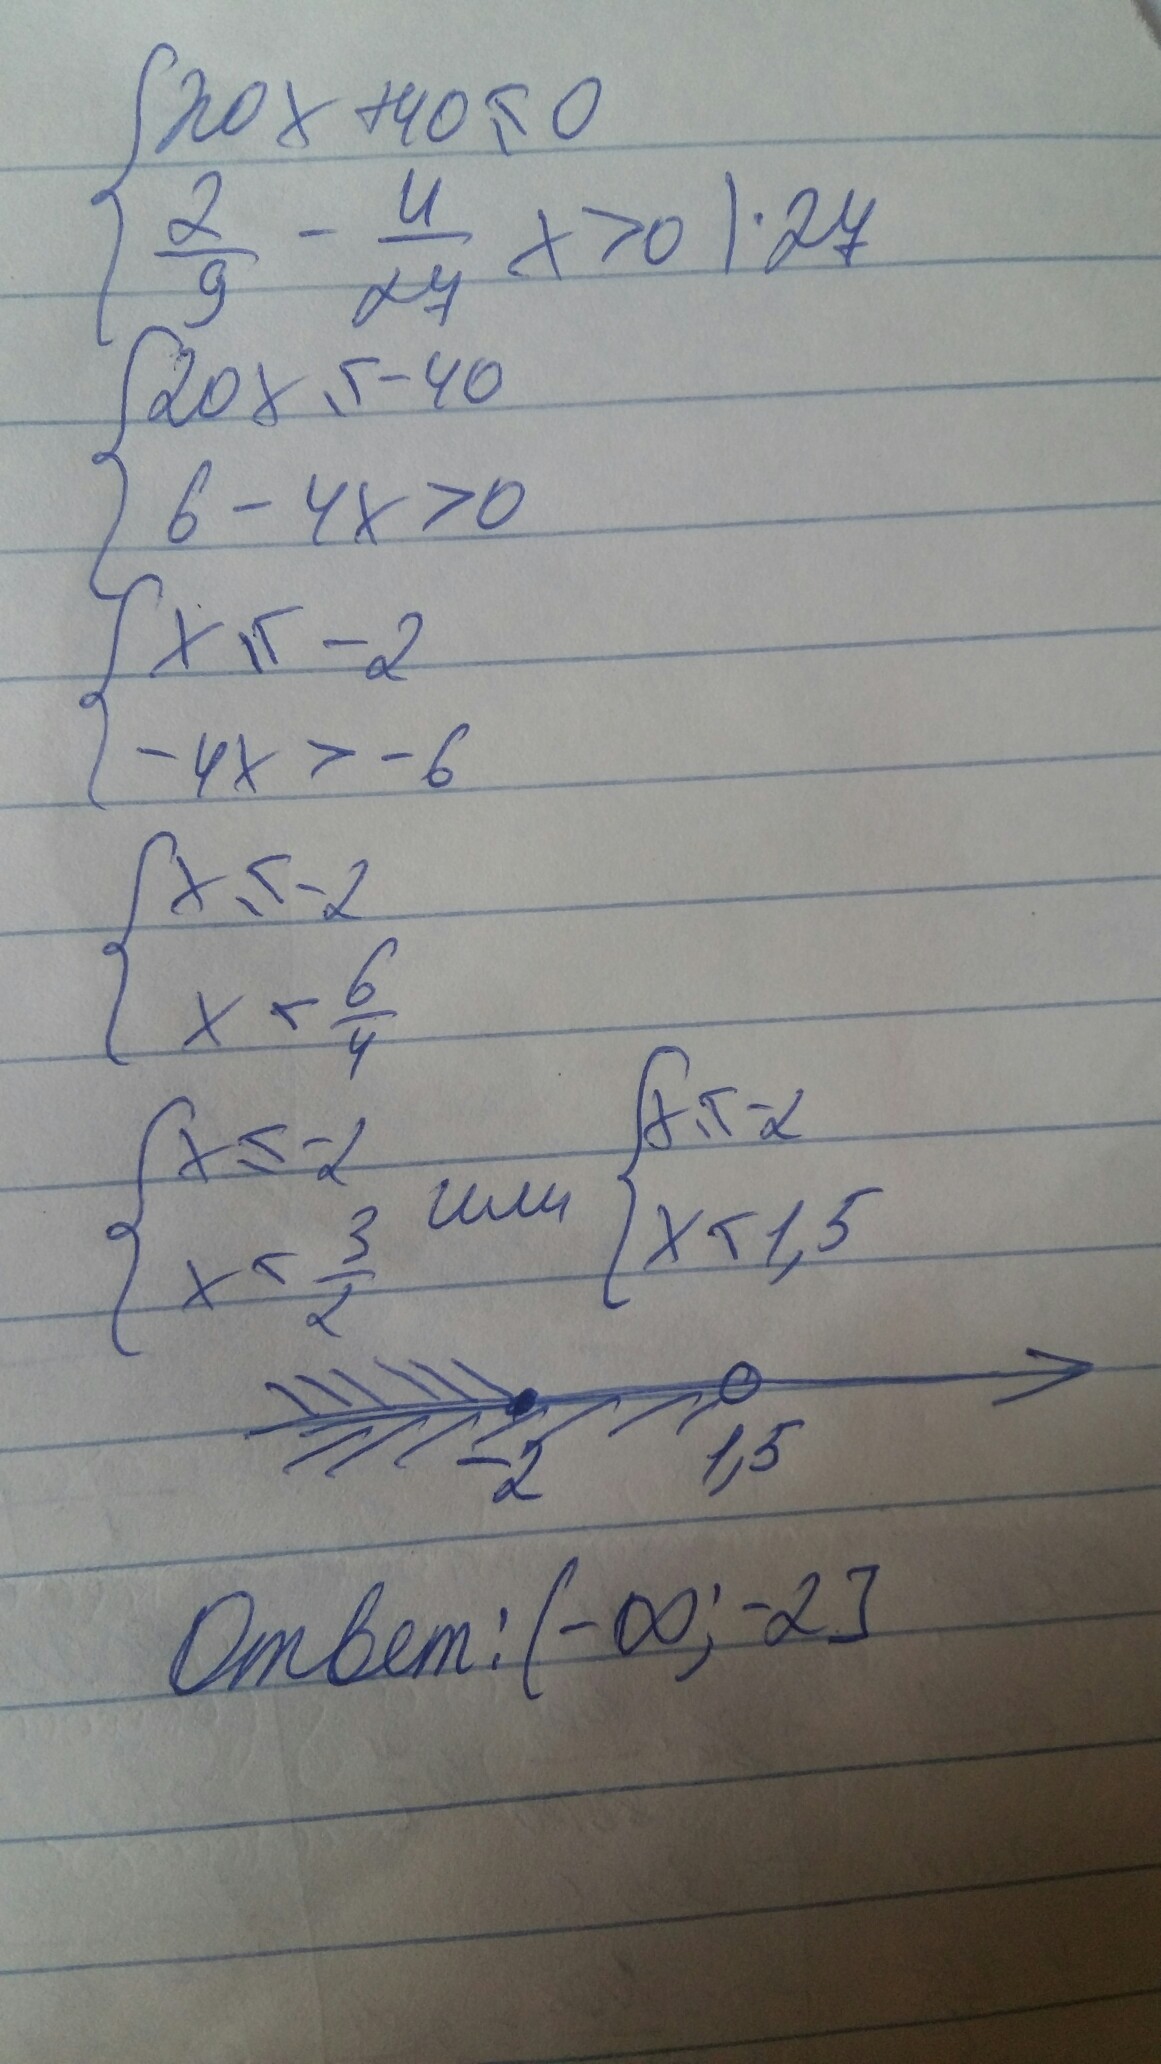 20x+40≤0
2/9 - 4/27 x>0 |·27
20x≤-40
6-4x>0
x≤-2
-4x>-6
x≤-2
x<6/4
x≤-2
x<3/2
или
x≤-2
x<1,5
-2 1,5
Ответ: (-∞;-2]